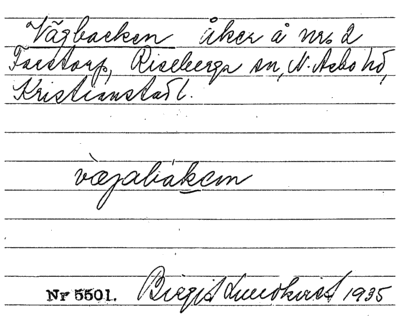 Vägbacken åker å nr. 2
Færstorp, Riseberga sn, N. Åsbo hd,
Kristianstad l.
vægabaken
Nr 5501. Birgit Lundkvist 1935